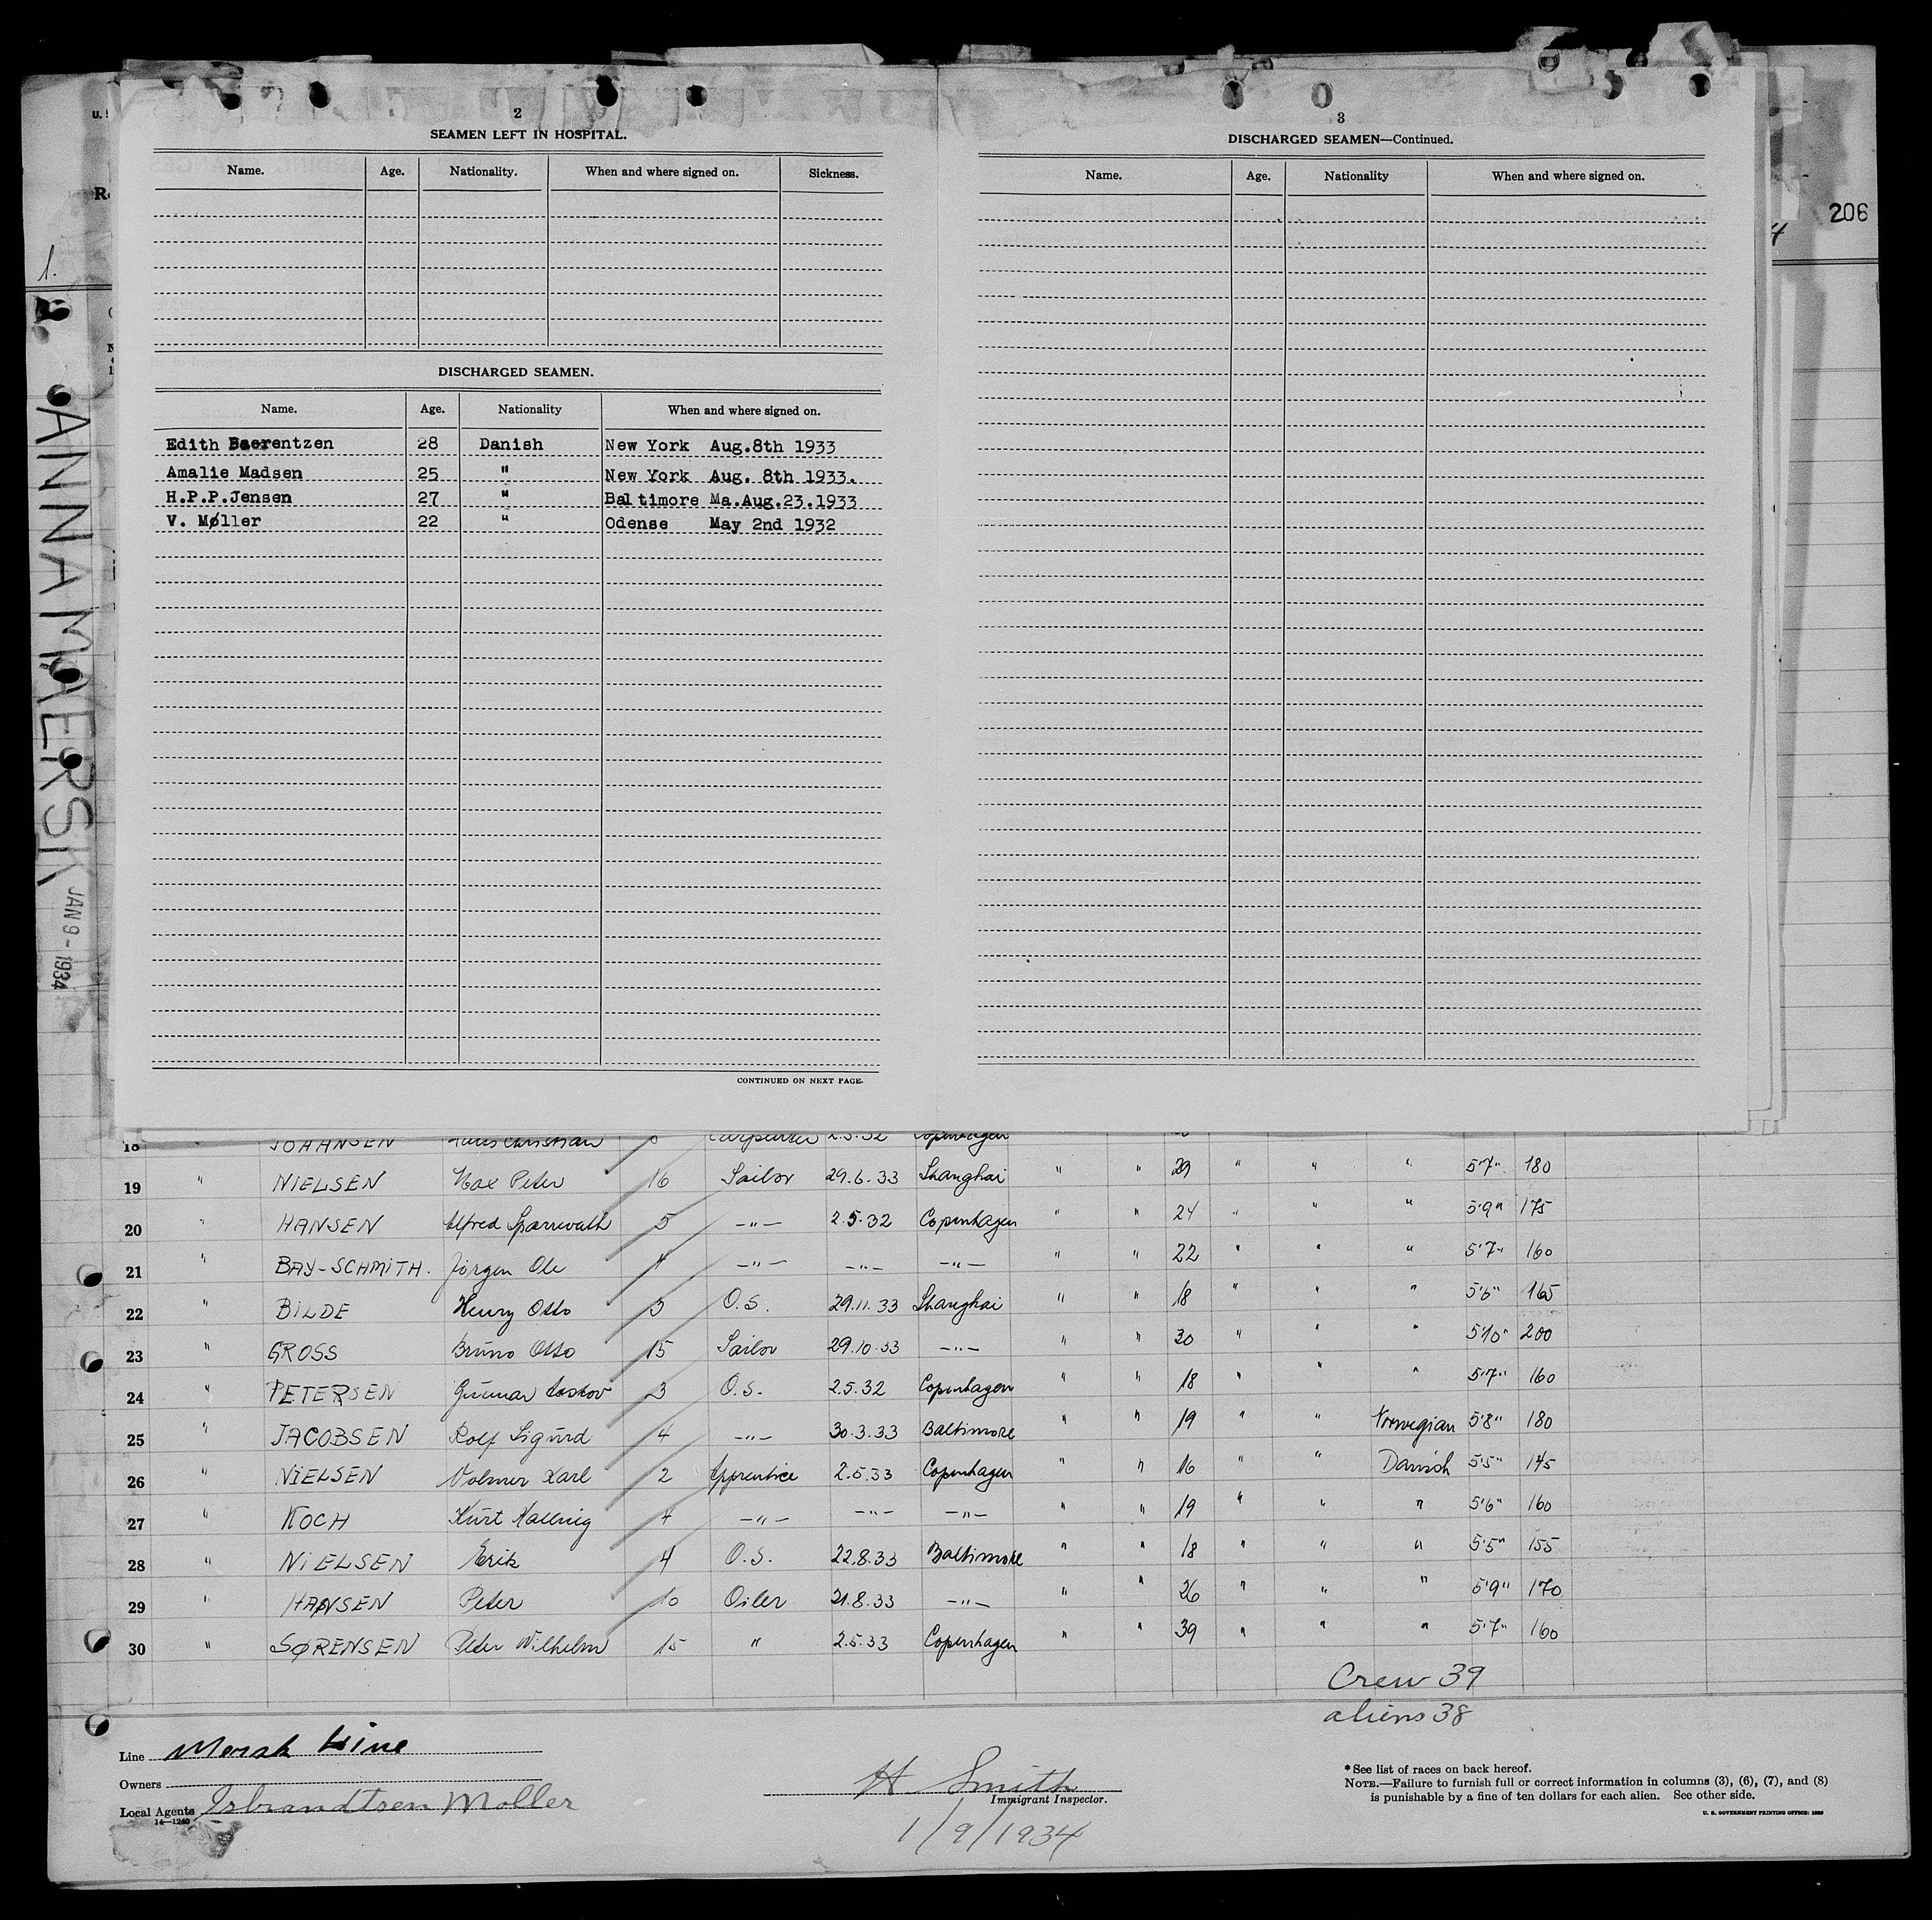 2
SEAMEN LEFT IN HOSPITAL.
Name. Age. Nationality. When and where signed on. Sickness.
DISCHARGED SEAMEN.
Name. Age. Nationality When and where signed on.
Edith Baerentzen 28 Danish New York Aug.8th 1933
Amalie Madsen 25 " New York Aug. 8th 1933.
H.P.P.Jensen 27 " Baltimore Ma.Aug.23.1933
V. Møller 22 " Odense May 2nd 1932
CONTINUED ON NEXT PAGE.
3
DISCHARGED SEAMEN—Continued.
Name. Age. Nationality When and where signed on.
206
1.
ANNA MAERSK
JAN 9 - 1934
18 JOHANSEN Hans Christian Carpenter 2.5.32 Copenhagen
19 " NIELSEN Max Peter 16 Sailor 29.6.33 Shanghai " " 29 " " " 5'7" 180
20 " HANSEN Alfred Sparrevath 5 —"— 2.5.32 Copenhagen " " 24 " " " 5'9" 175
21 " BAY-SCHMITH. Jörgen Ole 4 —"— —"— —"— " " 22 " " " 5'7" 160
22 " BILDE Henry Otto 3 O.S. 29.11.33 Shanghai " " 18 " " " 5'6" 165
23 " GROSS Bruno Otto 15 Sailor 29.10.33 —"— " " 30 " " " 5'10" 200
24 " PETERSEN Gunnar 3 O.S. 2.5.32 Copenhagen " " 18 " " " 5'7" 160
25 " JACOBSEN Rolf Sigurd 4 —"— 30.3.33 Baltimore " " 19 " " Norwegian 5'8" 180
26 " NIELSEN Volmer Karl 2 Apprentice 2.5.33 Copenhagen " " 16 " " Danish 5'5" 145
27 " KOCH Kurt 4 —"— —"— —"— " " 19 " " " 5'6" 160
28 " NIELSEN Erik 4 O.S. 22.8.33 Baltimore " " 18 " " " 5'5" 155
29 " HANSEN Peter 10 Oiler 21.8.33 —"— " " 26 " " " 5'9" 170
30 " SØRENSEN Peter Wilhelm 15 " 2.5.33 Copenhagen " " 39 " " " 5'7" 160
Crew 39
aliens 38
Line Mersk Line
Owners
Local Agents Isbrandtsen Moller
14—1240
H Smith
Immigrant Inspector.
1/9/1934
*See list of races on back hereof.
NOTE.—Failure to furnish full or correct information in columns (3), (6), (7), and (8)
is punishable by a fine of ten dollars for each alien. See other side.
U. S. GOVERNMENT PRINTING OFFICE: 1930